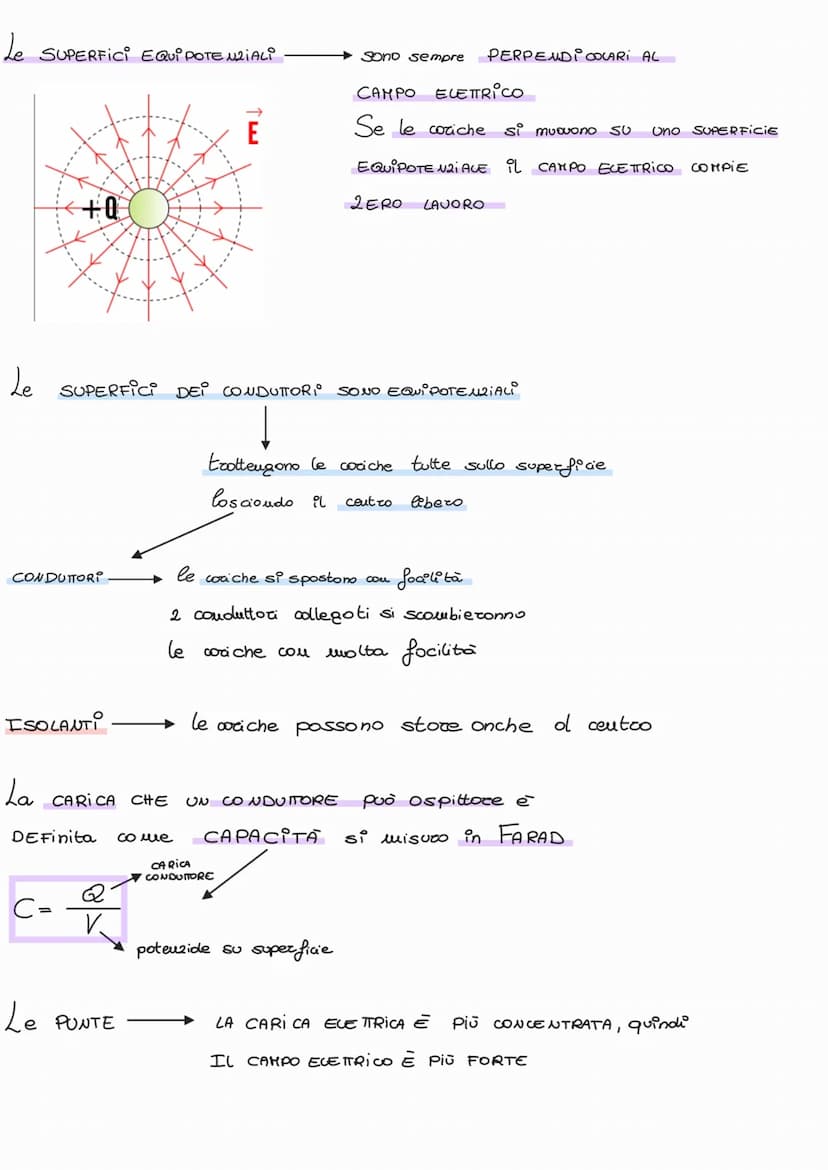 Le SUPERFICI EQUIPOTENZIALI → sono sempre PERPENDICOLARI AL
CAMPO ELETTRICO
Se le cariche si muovono su una SUPERFICIE
EQUIPOTENZIALE il CAMPO ELETTRICO COMPIE
ZERO LAVORO
E
+Q
Le SUPERFICI DEI CONDUTTORI SONO EQUIPOTENZIALI
trattengono le cariche tutte sulla superficie
lasciando il centro libero
CONDUTTORI → le cariche si spostano con facilità
2 conduttori collegati si scambieranno
le cariche con molta facilità
ISOLANTI → le cariche possono stare anche al centro
La CARICA CHE UN CONDUTTORE può ospittare è
DEFinita come CAPACITÀ si misura in FARAD
CARICA
CONDUTTORE
C = Q/V
potenziale su superficie
Le PUNTE → LA CARICA ELETTRICA È PIÙ CONCENTRATA, quindi
IL CAMPO ELETTRICO È PIÙ FORTE